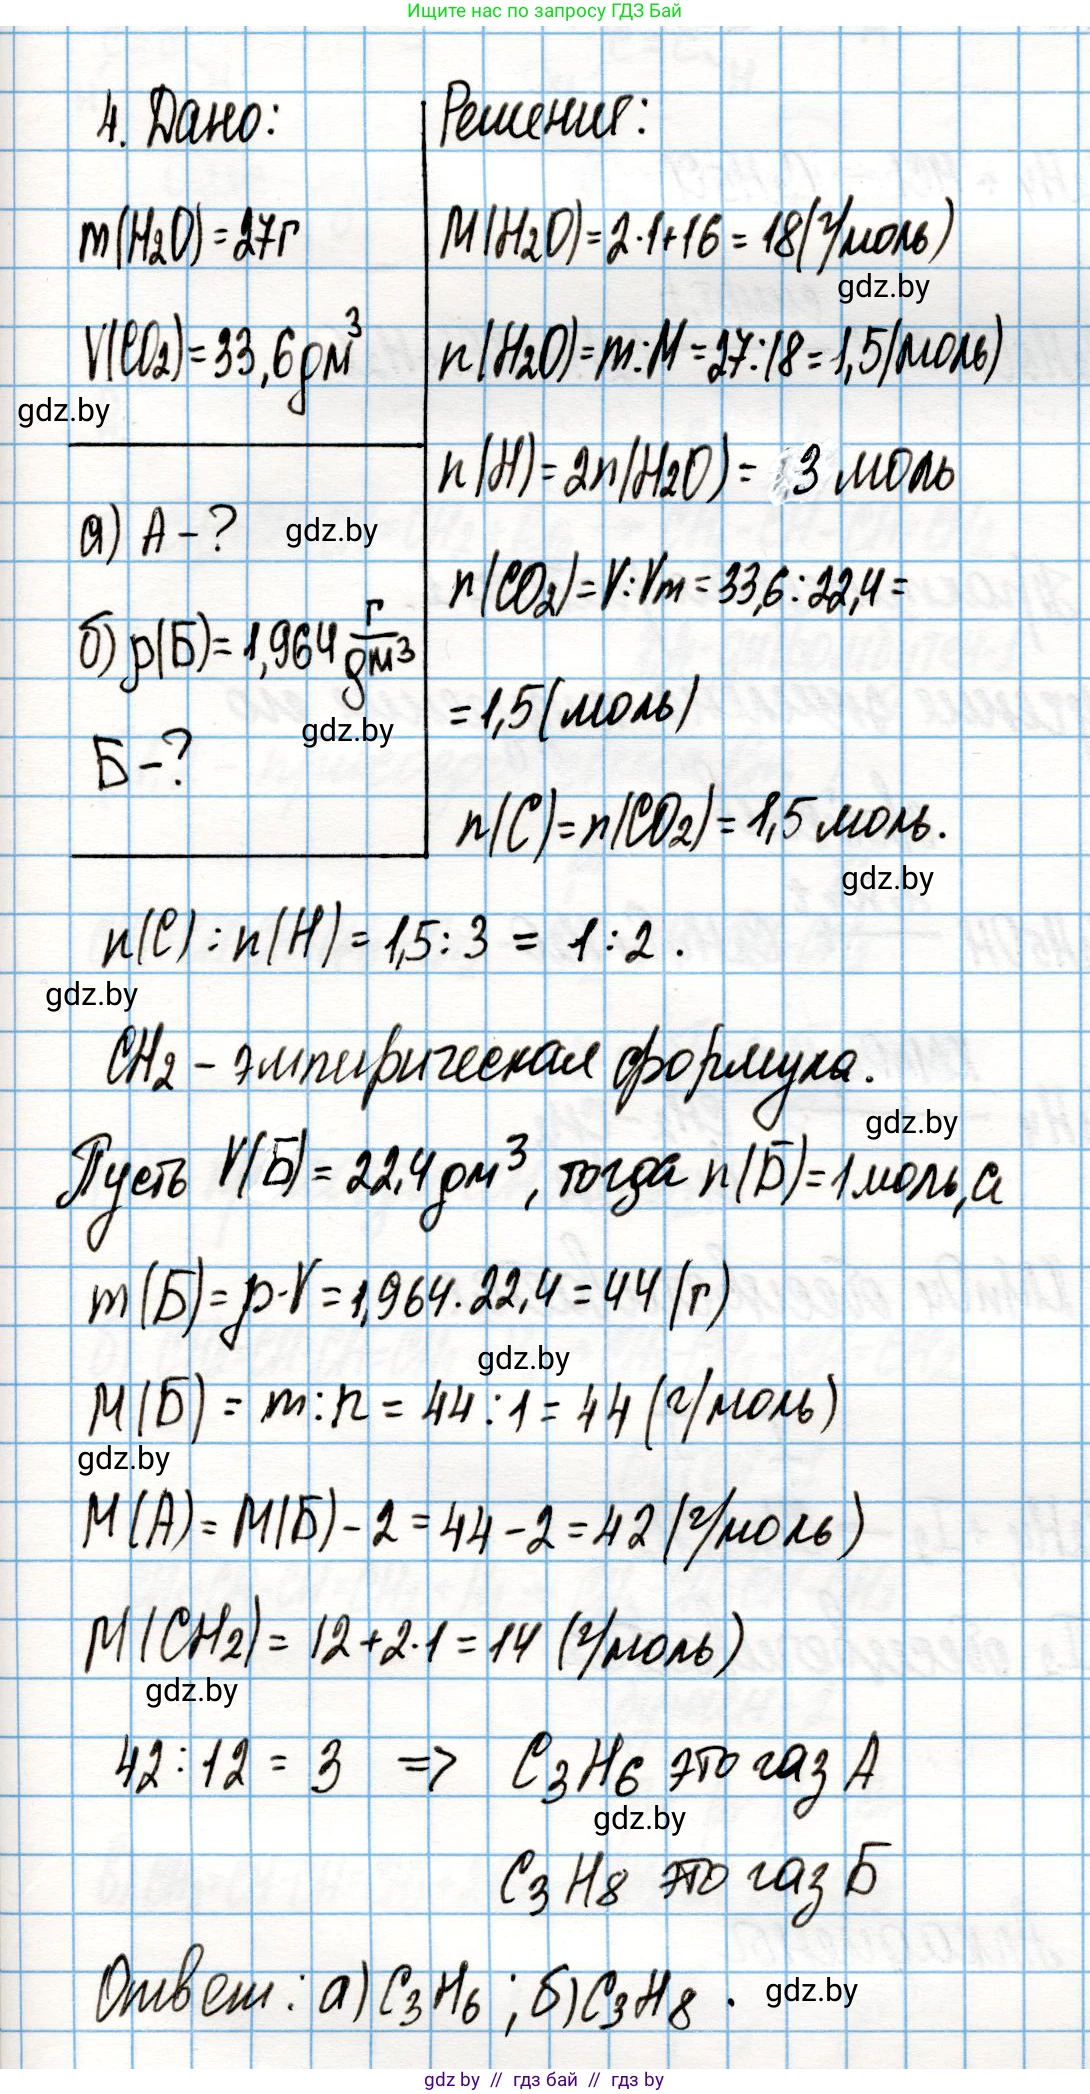 Ищите нас по запросу ГДЗ Бай
4. Дано:
m(H₂O) = 27г
V(CO₂) = 33,6 дм³
gdz.by
а) А - ?
gdz.by
б) p(Б) = 1,964 г/дм³
gdz.by
Б - ?
Решения:
M(H₂O) = 2·1+16 = 18(г/моль)
gdz.by
n(H₂O) = m:M = 27:18 = 1,5(моль)
n(H) = 2n(H₂O) = 3 моль
n(CO₂) = V:Vm = 33,6:22,4 =
= 1,5(моль)
n(C) = n(CO₂) = 1,5 моль.
gdz.by
n(C) : n(H) = 1,5:3 = 1:2.
gdz.by
CH₂ - эмпирическая формула.
gdz.by
Пусть V(Б) = 22,4 дм³, тогда n(Б) = 1моль, а
m(Б) = p·V = 1,964·22,4 = 44(г)
gdz.by
M(Б) = m:n = 44:1 = 44(г/моль)
gdz.by
M(A) = M(Б) - 2 = 44 - 2 = 42(г/моль)
M(CH₂) = 12+2·1 = 14 (г/моль)
gdz.by
42:12 = 3 => C₃H₆ это газ А
gdz.by
C₃H₈ это газ Б
Ответ: а) C₃H₆; б) C₃H₈.
gdz.by
gdz.by // гдз бай // гдз by